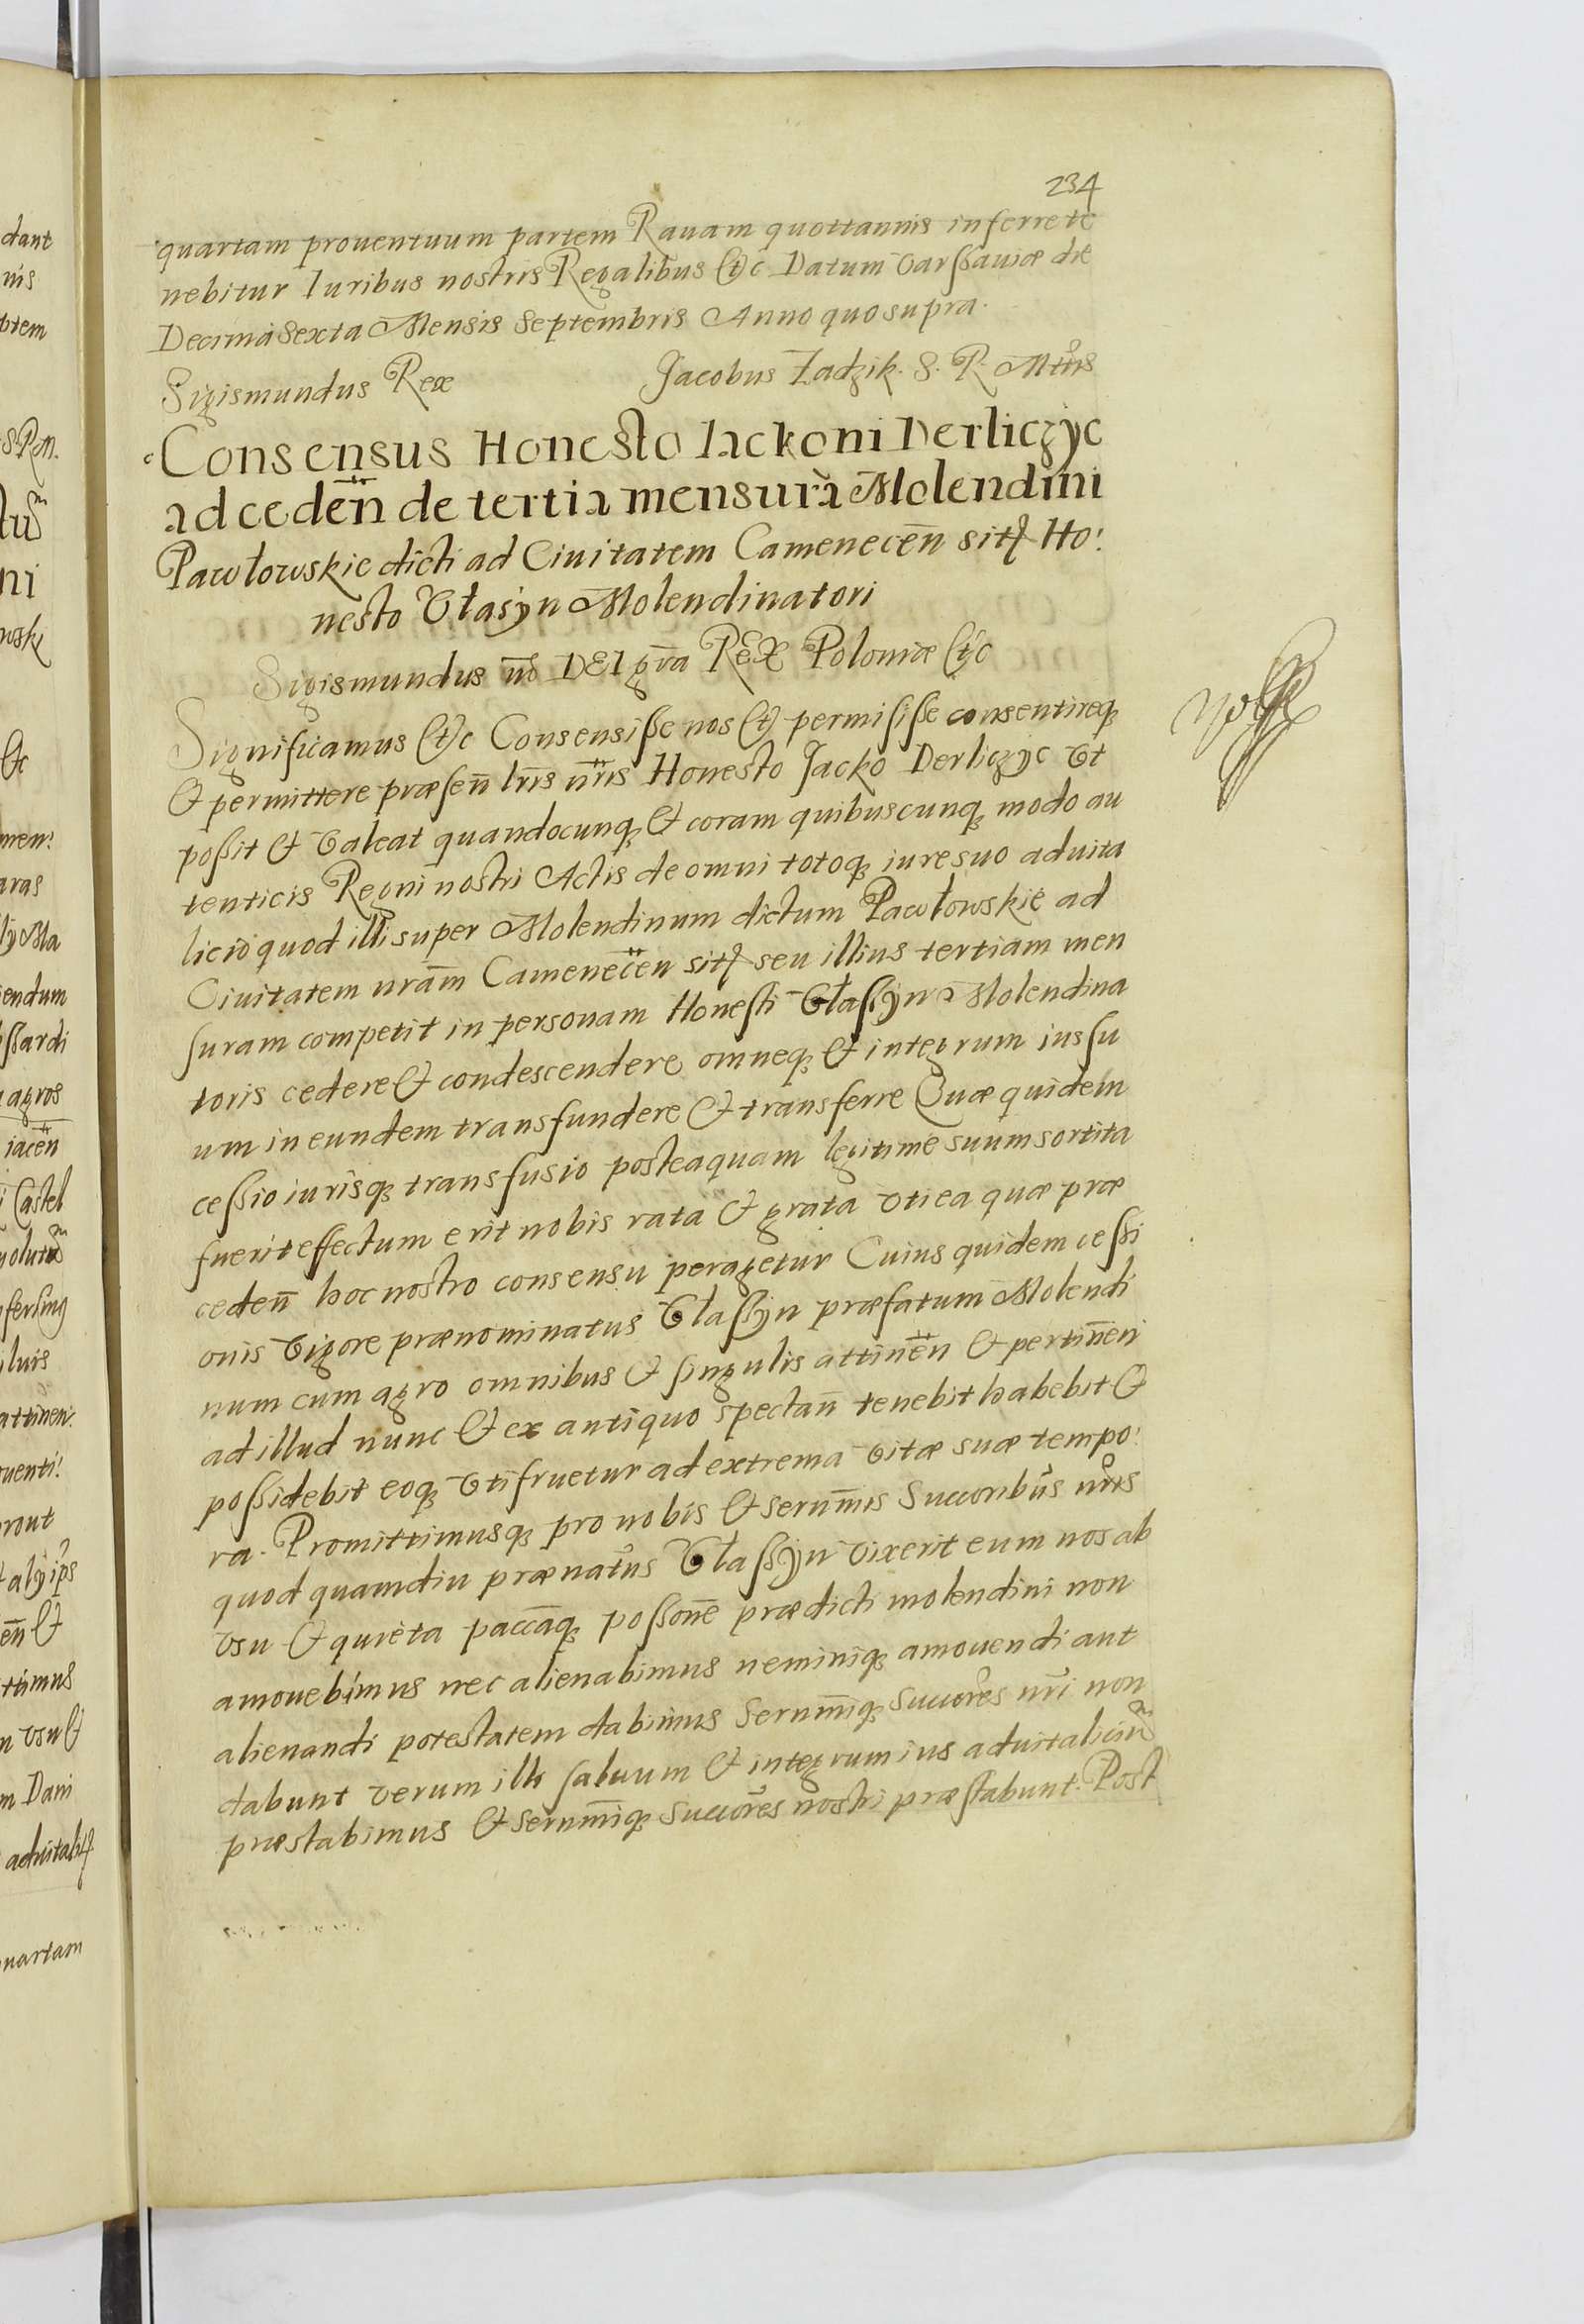 234
quartam prouentuum partem Rauam quottannis inferre te
nebitur Iuribus nostris Regalibus &c Datum Varssauiæ die
Decima Sexta Mensis Septembris Anno quo supra.
Sigismundus Rex Jacobus Zadzik. S. R. Mtis
Consensus Honesto Iackoni Derliczyc
ad ceden̄ de tertia mensura Molendini
Pawłowskie dicti ad Ciuitatem Camenecen̄ sit Ho:
nesto Vłasyn Molendinatori
Sigismundus III DEI gr̄a REX Poloniæ &c
Significamus &c Consensisse nos & permisisse consentireq
& permittere præsen̄ lr̄is nr̄is Honesto Jacko Derliczyc Vt
possit & Valeat quandocunq & coram quibuscunq modo au
tenticis Regni nostri Actis de omni totoq iure suo aduita
licio quod illi super Molendinum dictum Pawłowskie ad
Ciuitatem nr̄am Camenecen̄ sit seu illius tertiam men
suram competit in personam Honesti Vłassyn Molendina
toris cedere & condescendere omneq & integrum ius su
um in eundem transfundere & transferre Quæ quidem
cessio iurisq transfusio posteaquam legitime suum sortita
fuerit effectum erit nobis rata & grata vti ea quæ præ
ceden̄ hoc nostro consensu peragetur Cuius quidem cessi
onis Vigore prænominatus Vlassyn præfatum Molendi
num cum agro omnibus & singulis attinen̄ & pertinen̄
ad illud nunc & ex antiquo spectan̄ tenebit habebit &
possidebit eoq Vtifruetur ad extrema vitæ suæ tempo:
ra. Promittimusq pro nobis & Sernm̄is Succoribus nr̄is
quod quamdiu prænatus Vłassyn vixerit eum nos ab
vsu & quieta paccaq possone prædicti molendini non
amouebimus nec alienabimus neminiq amouendi aut
alienandi potestatem dabimus Sernm̄iq Succores nr̄i non
dabunt verum illi saluum & integrum ius aduitaliciū
præstabimus & Sernm̄iq Succores nostri præstabunt. Post